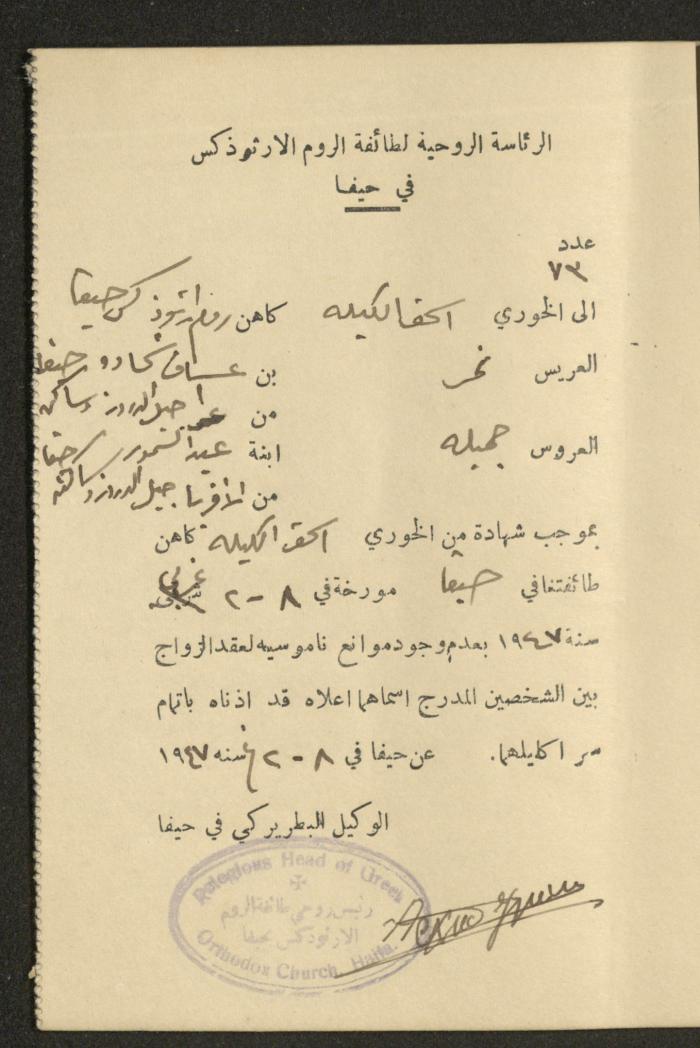 الرئاسة الروحية لطائفة الروم الارثوذكس
في حيفا
عدد
٧٣
الى الخوري اسحق الكيله كاهن روم ارثوذكس حيفا
العريس نمر بن عساف شحادو حيفا
من جبل الدروز وساكن
العروس جميله ابنة عيد السمور حيفا
من جبل الدروز وساكنه
بموجب شهادة من الخوري اسحق الكيله كاهن
طائفتنا في حيفا مورخة في ٨ - ٢ غربي
سنة ١٩٤٧ بعدم وجود موانع ناموسيه لعقد الزواج
بين الشخصين المدرج اسماهما اعلاه قد اذناه باتمام
سر اكليلهما. عن حيفا في ٨ - ٢ غ سنه ١٩٤٧
الوكيل البطريركي في حيفا
Relegious Head of Greek
رئيس روحي طائفة الروم
الارثوذكس بحيفا
Orthodox Church, Haifa.